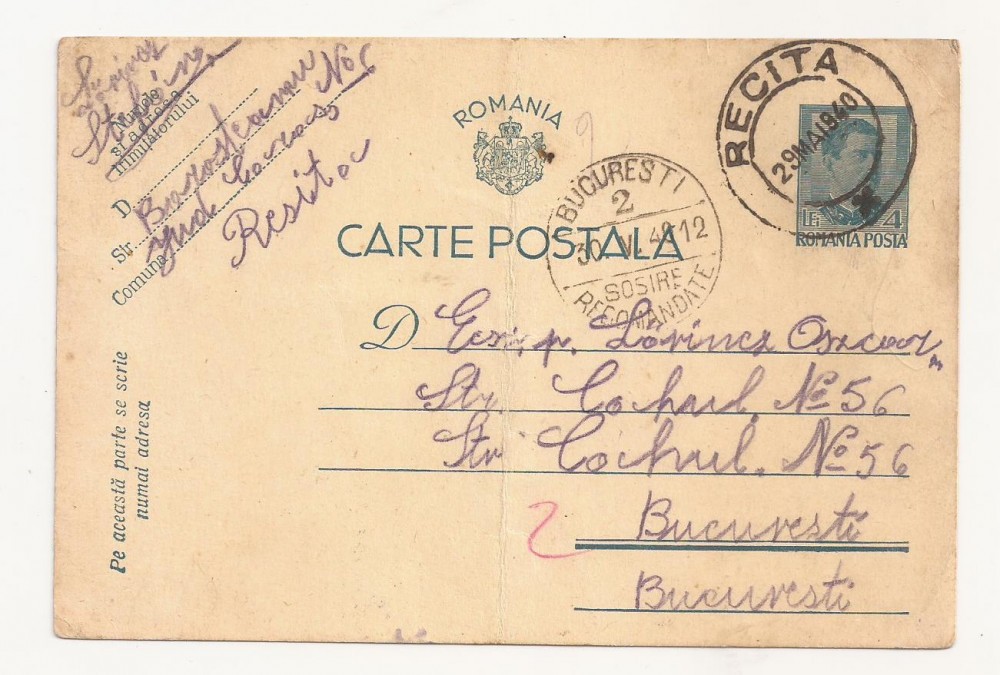 Numele
și adresa
trimițătorului
D
Str.
No 6
jud. Caraș
Comuna
Resita
ROMANIA
CARTE POSTALA
RECITA
29 MAI 940
LEI 4
ROMANIA POSTA
BUCURESTI
2
30 40 12
SOSIRE
RECOMANDATE
D Lorincz Oszcar
Str. No 56
Str No 56
Bucuresti
Bucuresti
Pe această parte se scrie
numai adresa
2